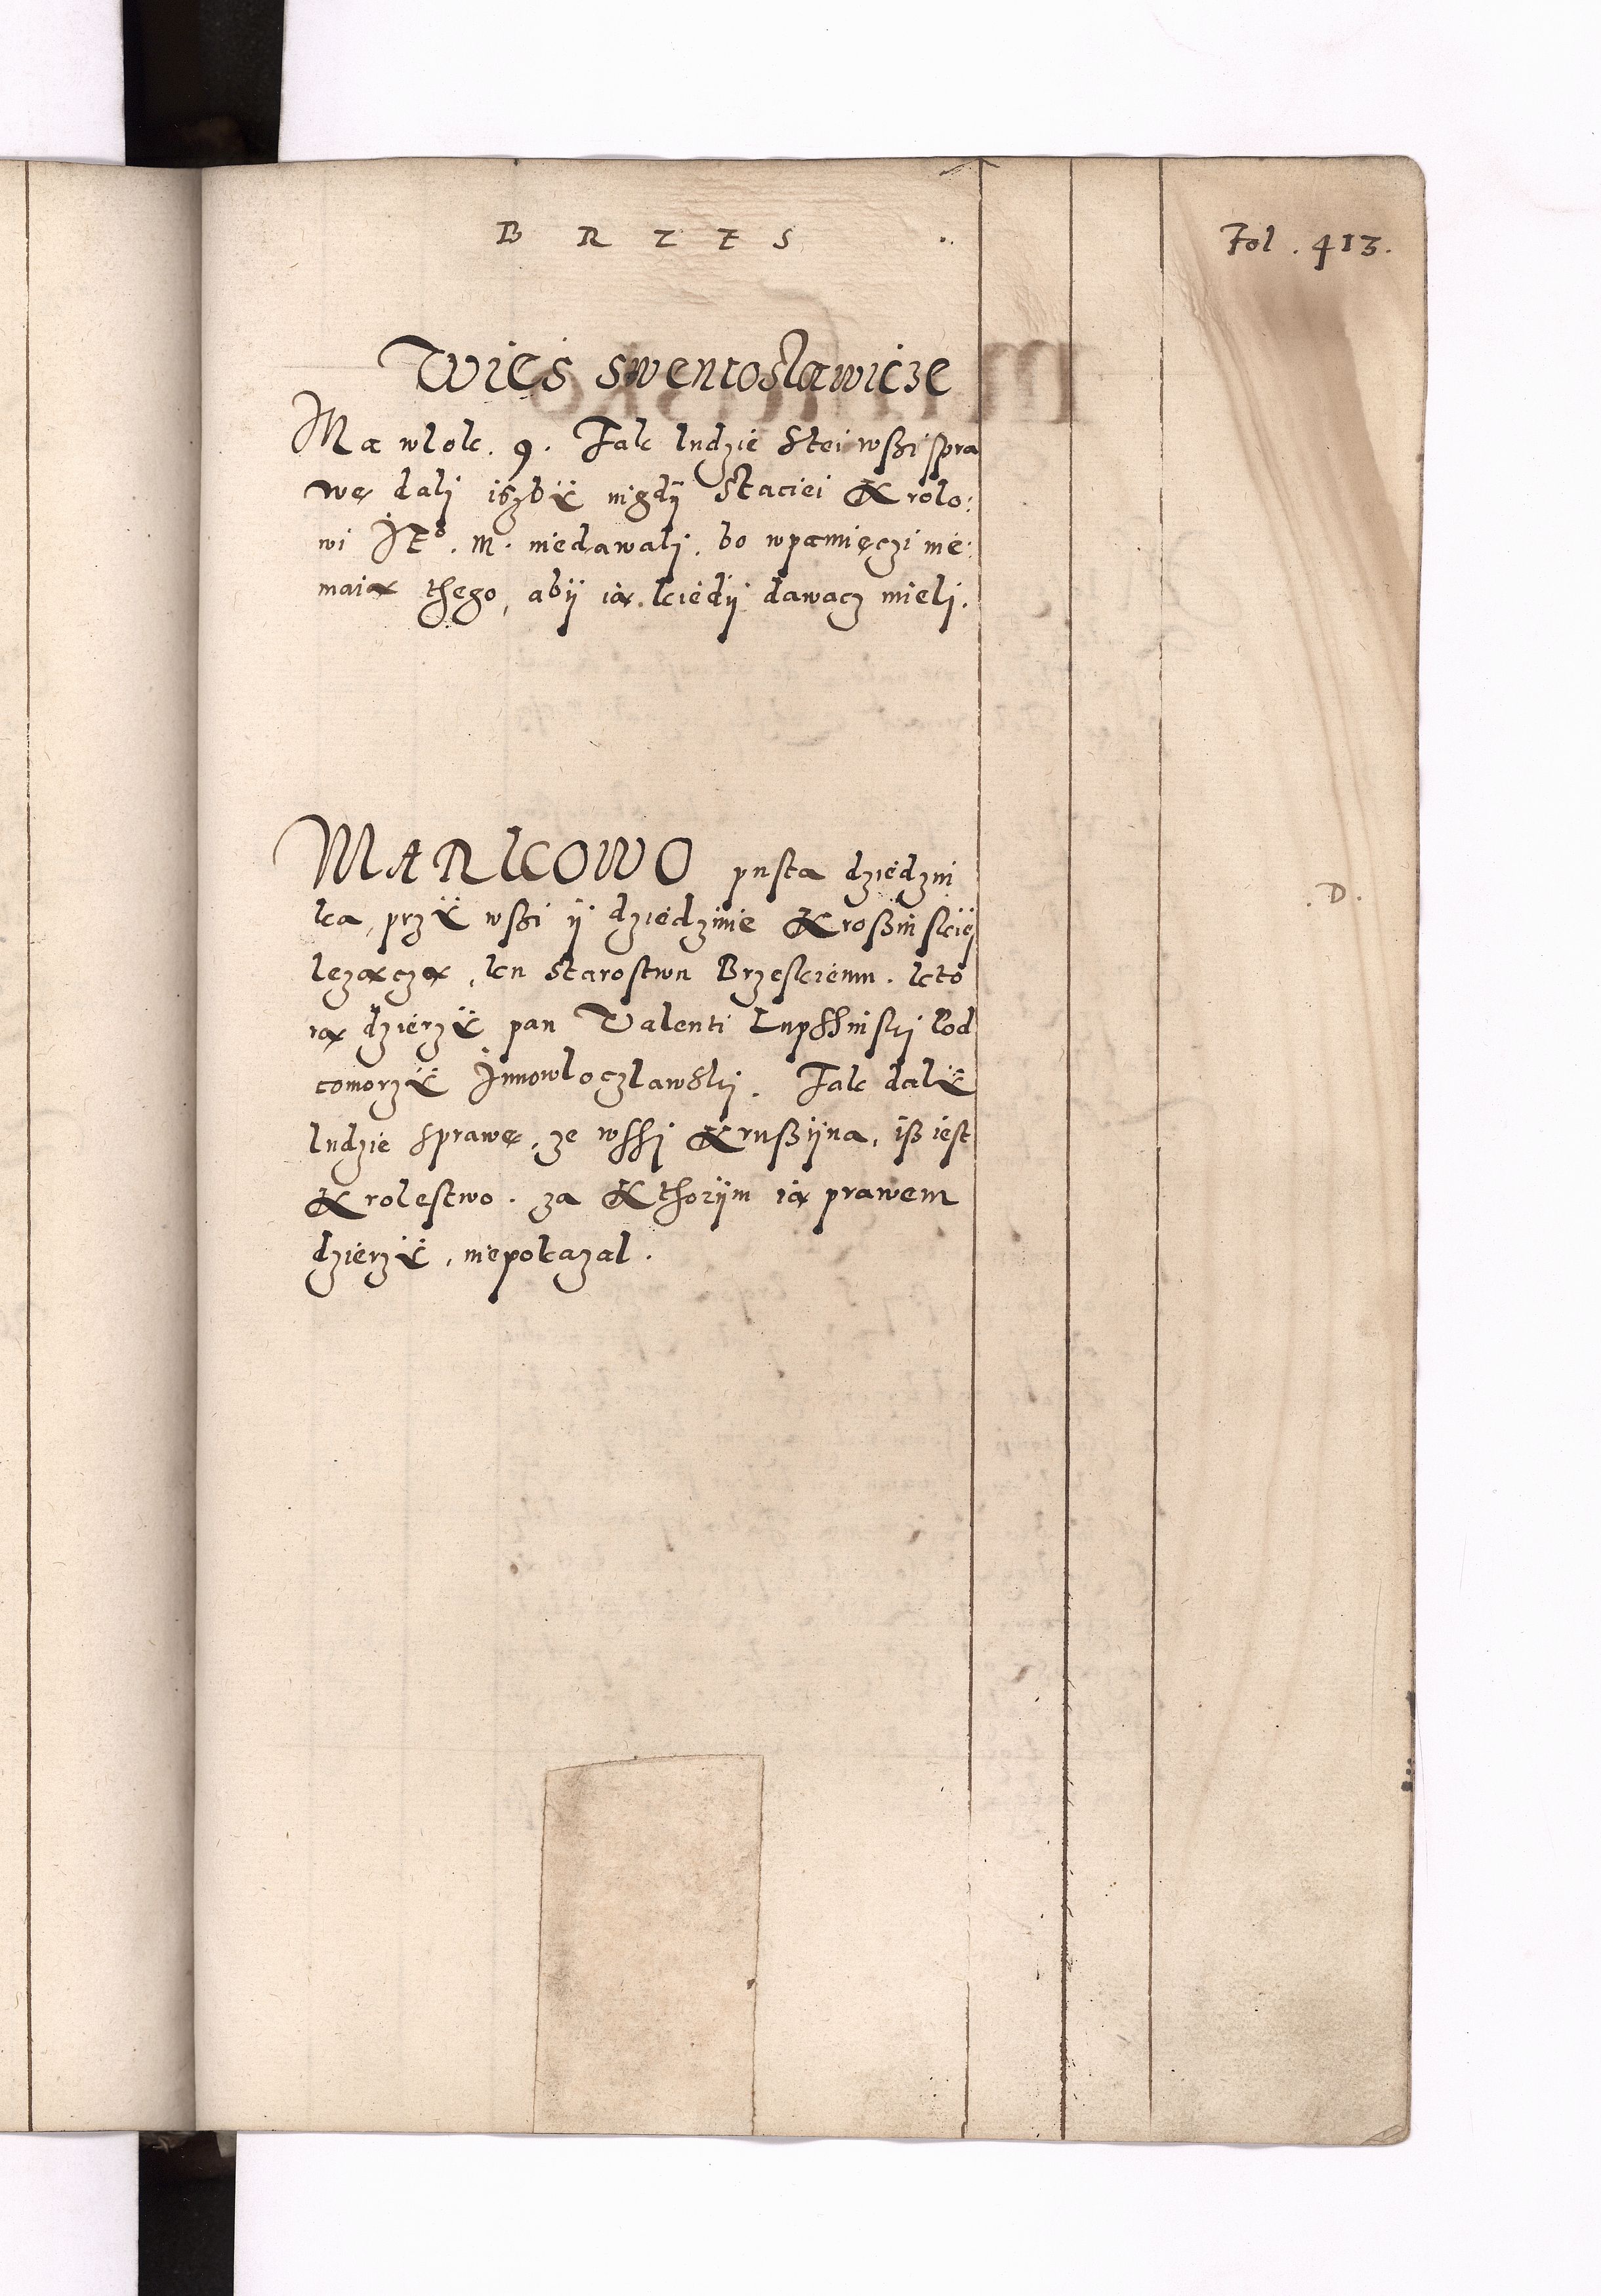 B R Z E S
Fol. 413.
Wies swentoslawicze
Ma wlok. 9. Tak ludzie stei wssi spra
wę dali iszby nigdy staciei Krolo:
wi JE°. M. niedawali. bo wpamięczi nie:
maią thego, aby ią kiedy dawacz mieli.
MARKOWO pusta dziedzni
ka, przy wssi y dziedzinie Kroßinskiej
lezącza, ku starostwu Brzeskiemu. kto
rą dzierzy pan Valenti Lupssinski Pod
comorzy Jnnowloczlawski. Tak daly
ludzie sprawę, ze wssi Krußyna, iß iest
Krolestwo. za Kthorym ią prawem
dzierzy, niepokazal.
.D.